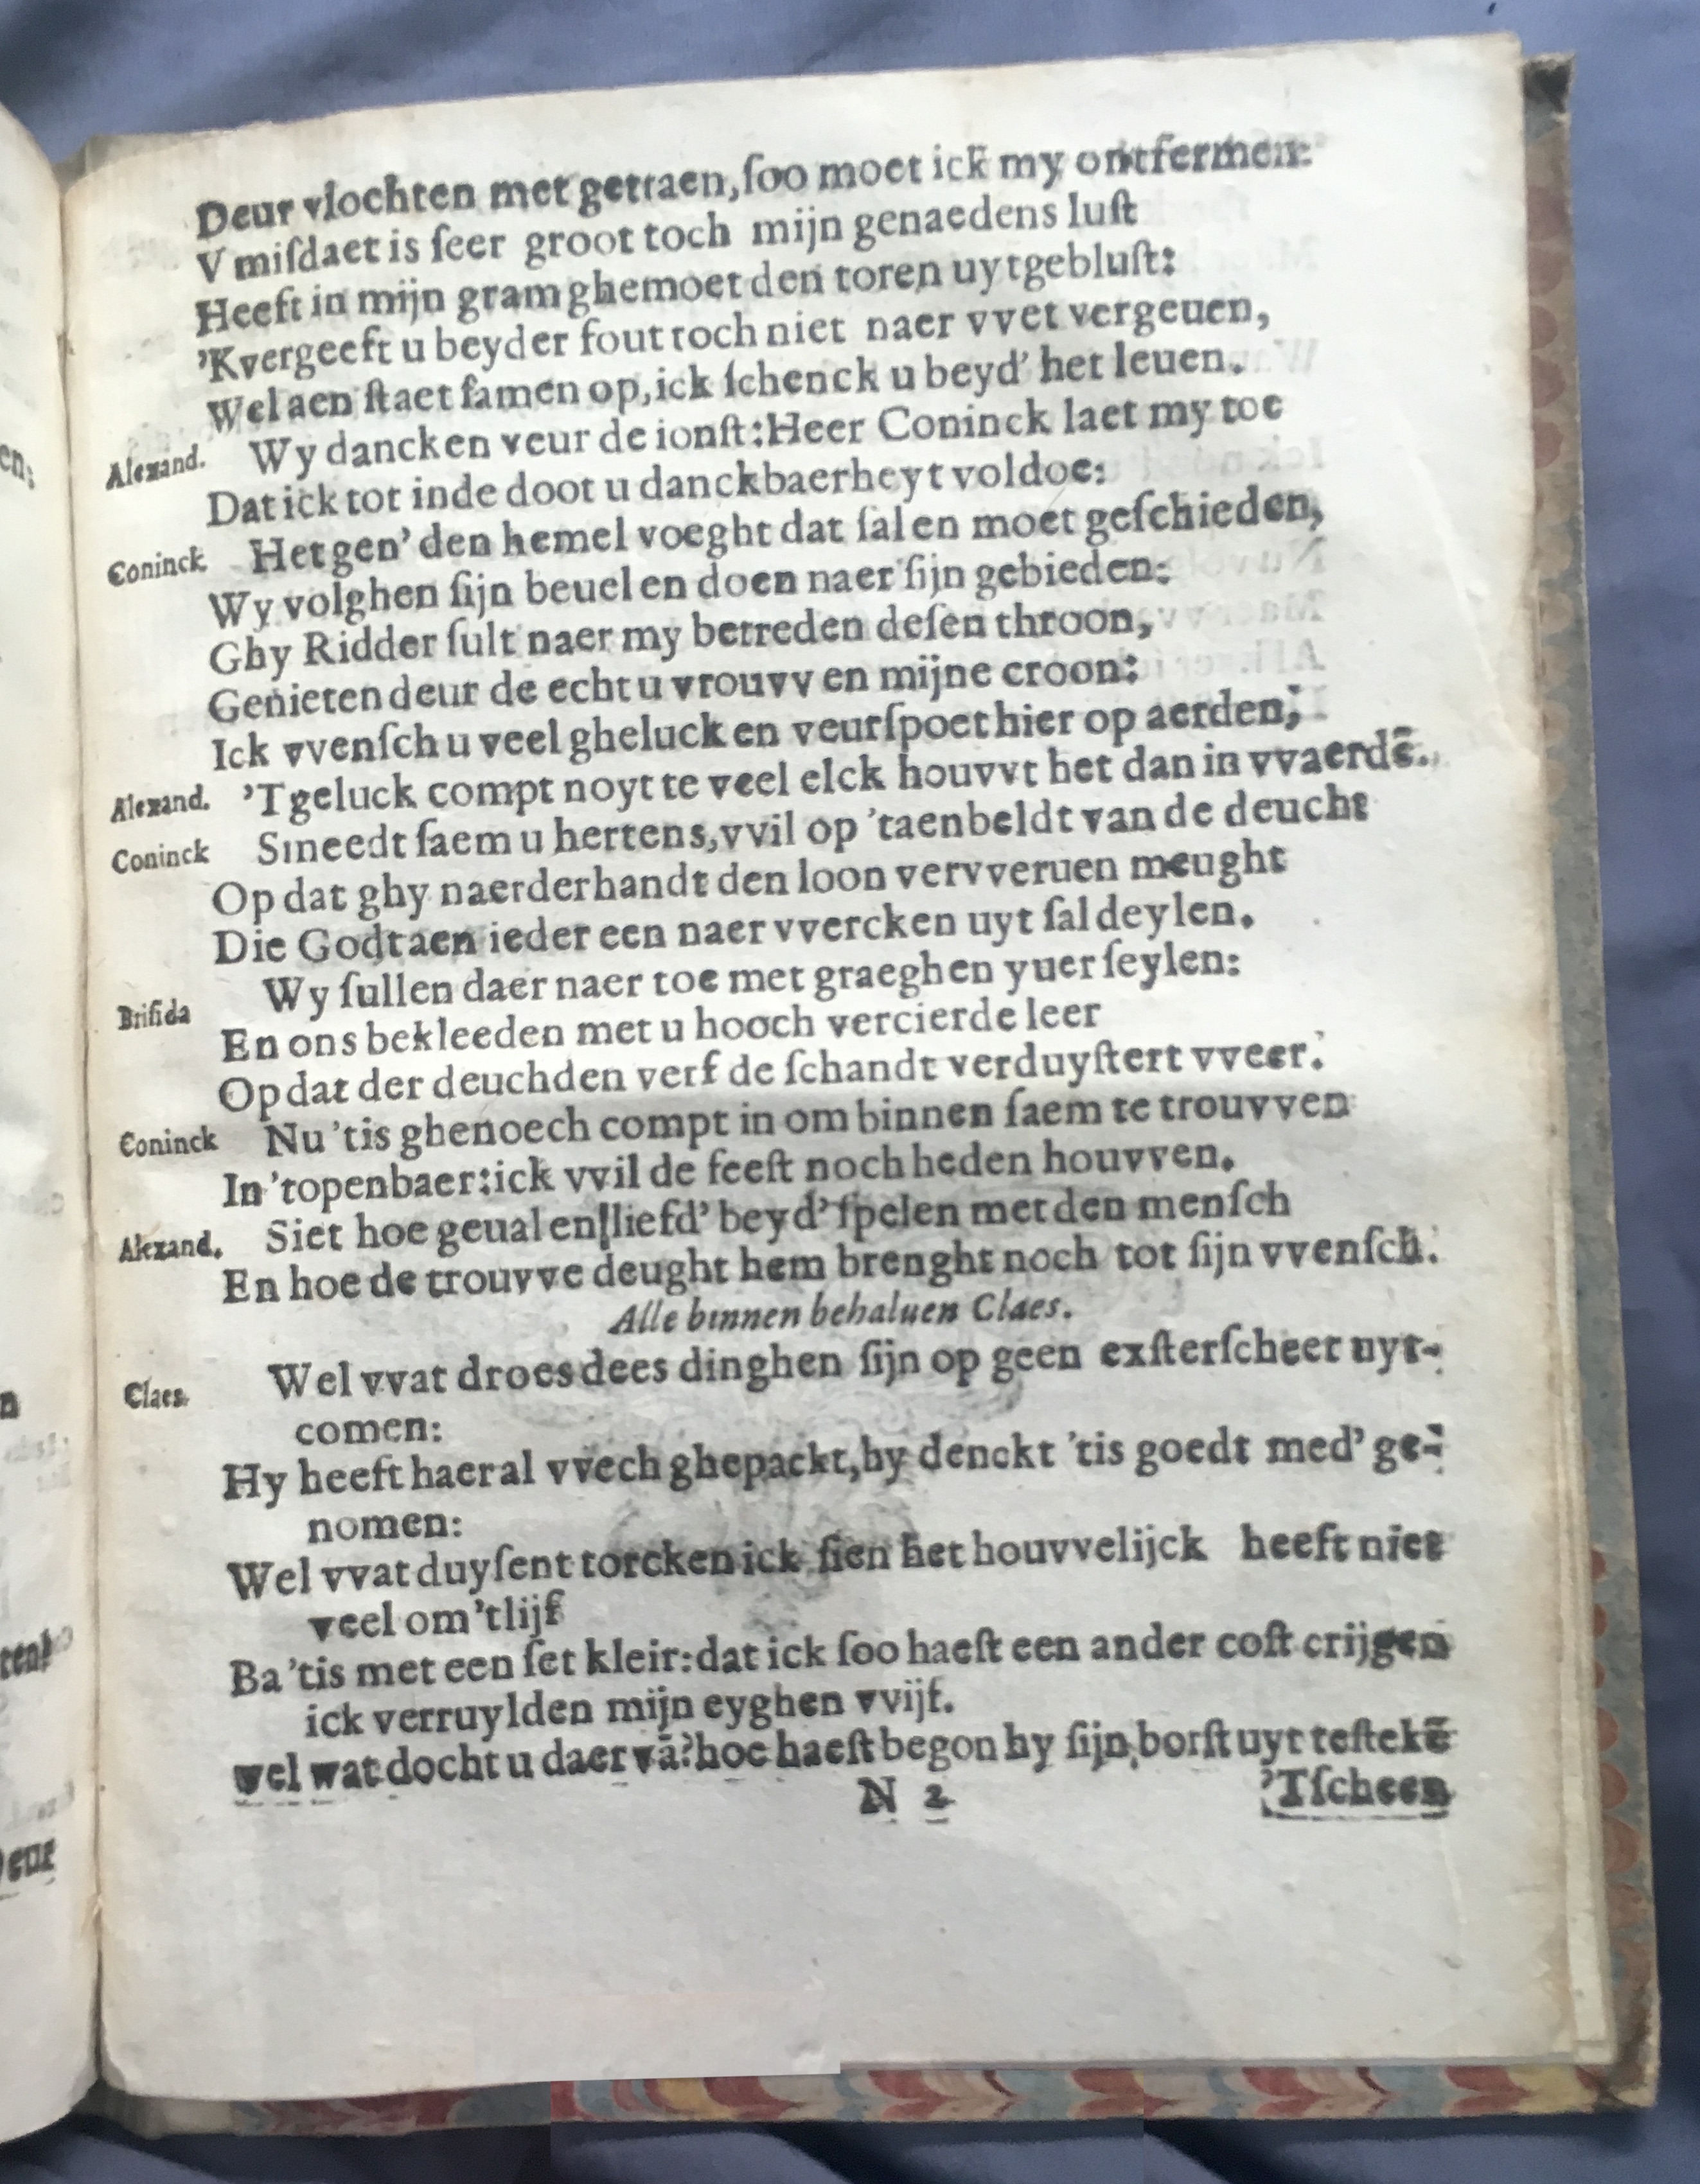 Deur vlochten met getraen, ſoo moet ick my ontfermen:
V miſdaet is ſeer groot toch mijn genaedens luſt
Heeft in mijn gram ghemoet den toren uytgebluſt:
'Kvergeeft u beyder fout toch niet naer vvet vergeuen,
Wel aen ſtaet ſamen op, ick ſchenck u beyd' het leuen.
Alexand. Wy dancken veur de ionſt: Heer Coninck laet my toe
Dat ick tot inde doot u danckbaerheyt voldoe:
Coninck Hetgen' den hemel voeght dat ſal en moet geſchieden,
Wy volghen ſijn beuel en doen naer ſijn gebieden:
Ghy Ridder ſult naer my betreden deſen throon,
Genieten deur de echt u vrouvv en mijne croon:
Ick vvenſch u veel gheluck en veurſpoet hier op aerden,
Alexand. 'T geluck compt noyt te veel elck houvvt het dan in vvaerdē.
Coninck Smeedt ſaem u hertens, vvil op 'taenbeldt van de deucht
Op dat ghy naerderhandt den loon vervveruen meught
Die Godt aen ieder een naer vvercken uyt ſal deylen.
Briſida Wy ſullen daer naer toe met graeghen yuer ſeylen:
En ons bekleeden met u hooch vercierde leer
Op dat der deuchden verf de ſchandt verduyſtert vveer.
Coninck Nu 'tis ghenoech compt in om binnen ſaem te trouvven
In 'topenbaer: ick vvil de feeſt noch heden houvven.
Alexand. Siet hoe geual en liefd' beyd' ſpelen met den menſch
En hoe de trouvve deught hem brenght noch tot ſijn vvenſch.
Alle binnen behaluen Claes.
Claes. Wel vvat droes dees dinghen ſijn op geen exſterſcheet uyt-
comen:
Hy heeft haer al vvech ghepackt, hy denckt 'tis goedt med' ge-
nomen:
Wel vvat duyſent torcken ick ſien het houvvelijck heeft niet
veel om 'tlijf
Ba 'tis met een ſet kleir: dat ick ſoo haeſt een ander coſt crijgen
ick verruylden mijn eyghen vvijf.
wel wat docht u daer vā? hoe haeſt begon hy ſijn borſt uyt teſtekē
N 2 'Tſcheen